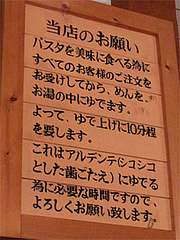 当店のお願い
パスタを美味に食べる為に
すべてのお客様のご注文を
お受けしてから、めんを、
お湯の中にゆでます。
よって、ゆで上げに10分程
を要します。
これはアルデンテ(シコシコ
とした歯ごたえ)にゆでる
為に必要な時間ですので、
よろしくお願い致します。